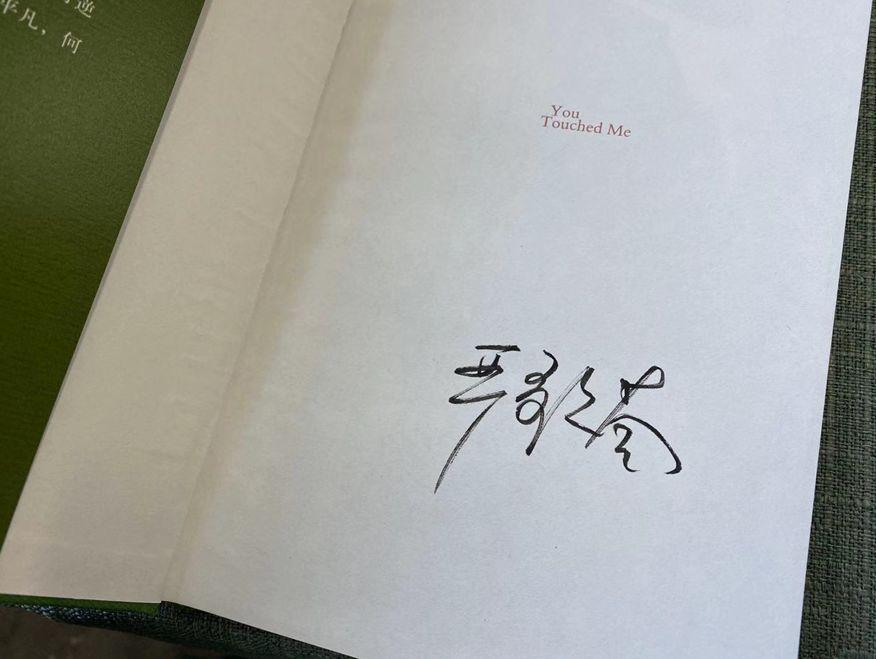 逆
平凡，何
You
Touched Me
严歌苓